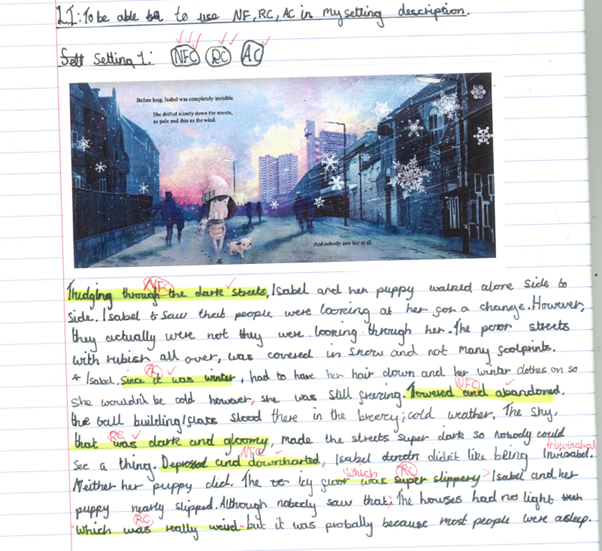 LI: To be able to use NF, RC, AC in my setting description.
Setting 1: NFC RC AC
Before long, Isabel was completely invisible.
She drifted silently down the streets,
as pale and thin as the wind.
And nobody saw her at all.
NFC
Trudging through the dark streets, Isabel and her puppy walked alone side to
side. Isabel saw that people were looking at her for a change. However,
they actually were not they were looking through her. The poor streets
with rubish all over, was covered in snow and not many footprints.
AC
Isabel, since it was winter, had to have her hair down and her winter clothes on so
NFC
she wouldn't be cold however, she was still freezing. Towered and abandoned,
the tall building/flats stood there in the breezy, cold weather. The sky,
RC
that was dark and gloomy, made the streets super dark so nobody could
NFC #invisible
see a thing. Depressed and downharted, Isabel didn't like being Invisabel.
which RC
Neither her puppy did. The icy floor was super slippery Isabel and her
puppy nearly slipped. Although nobody saw that; The houses had no light
RC
which was really weird but it was probally because most people were asleep.